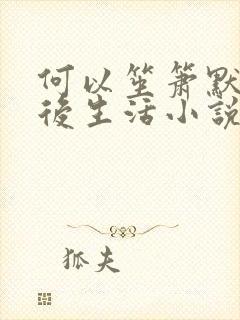 何以笙箫默
後生活小説
狐夫